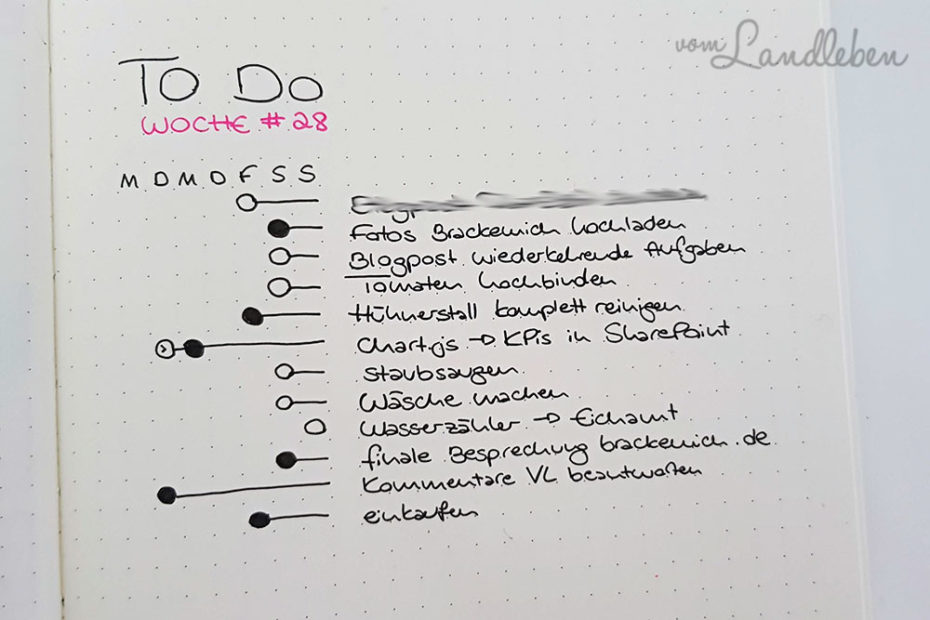 vom Landleben
TO DO
WOCHE # 28
M D M D F S S
Fotos Brackenich hochladen
Blogpost wiederkehrende Aufgaben
Tomaten hochbinden
Hühnerstall komplett reinigen
Chart.js → KPIs in SharePoint
staubsaugen
Wäsche machen
Wasserzähler → Eichamt
finale Besprechung brackenich.de
Kommentare VL beantworten
einkaufen